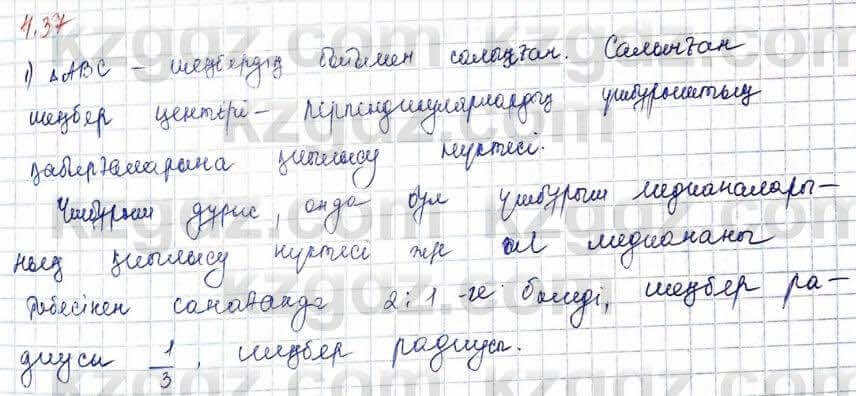 4.37
1) ΔABC – шеңбердің бойымен салынған. Салынған
шеңбер центірі – перпендикулярлардың үшбұрыштың
қабырғаларына қиылысу нүктесі.
Үшбұрыш дұрыс, онда бұл үшбұрыш медианалары–
ның қиылысу нүктесі және ол медиананы
төбесінен санағанда 2:1 -ге бөледі, шеңбер ра–
диусы 1/3, шеңбер радиусы.
kzgoz.com